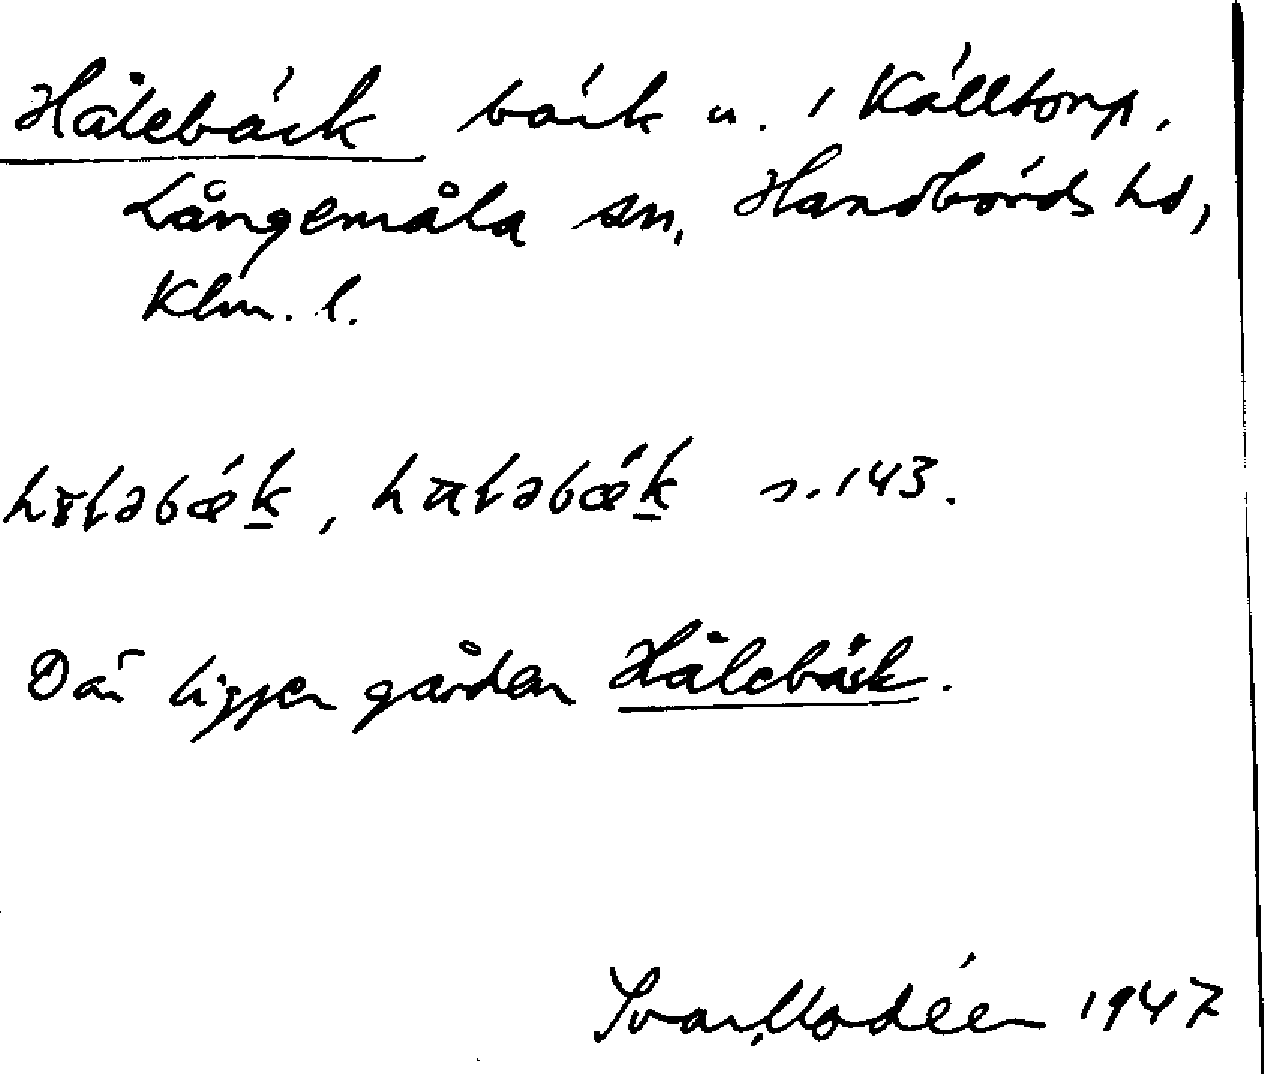 Hålebäck bäck u. i Källtorp,
Långemåla sn, Handbörds hd,
Klm. l.
s. 143.
Där ligger gården Hålebäck.
Ivar Modéer 1947